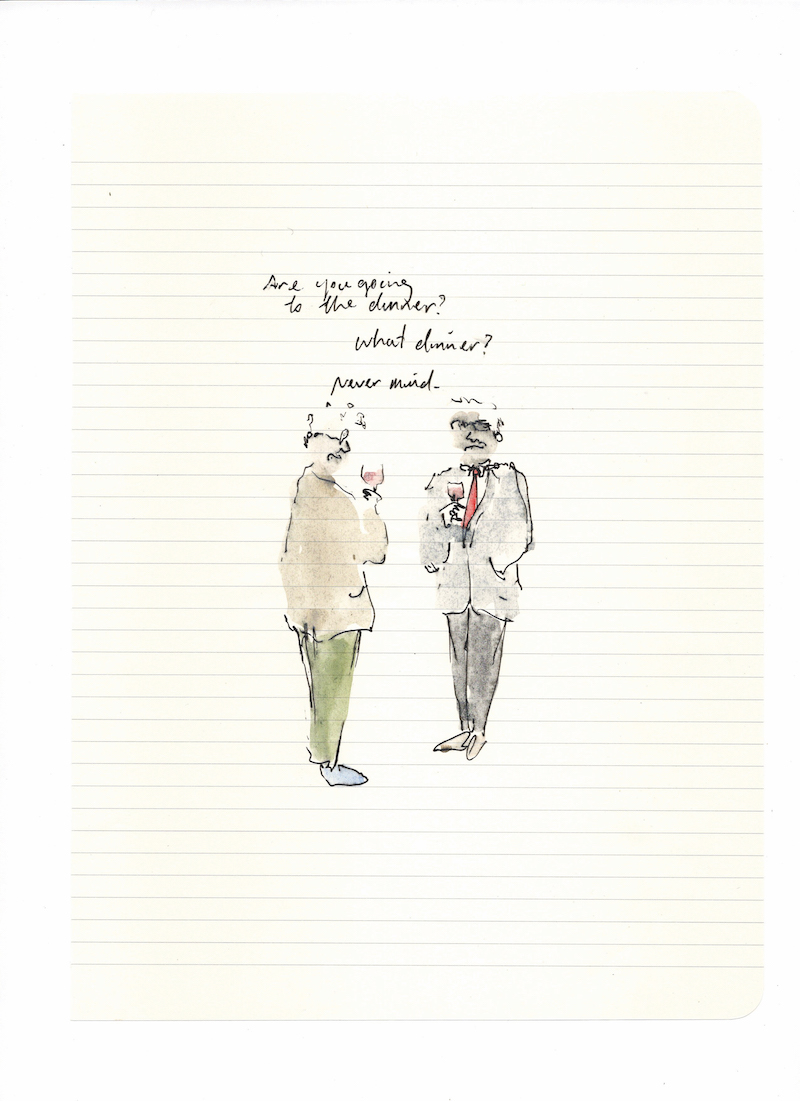 Are you going
to the dinner?
What dinner?
Never mind.